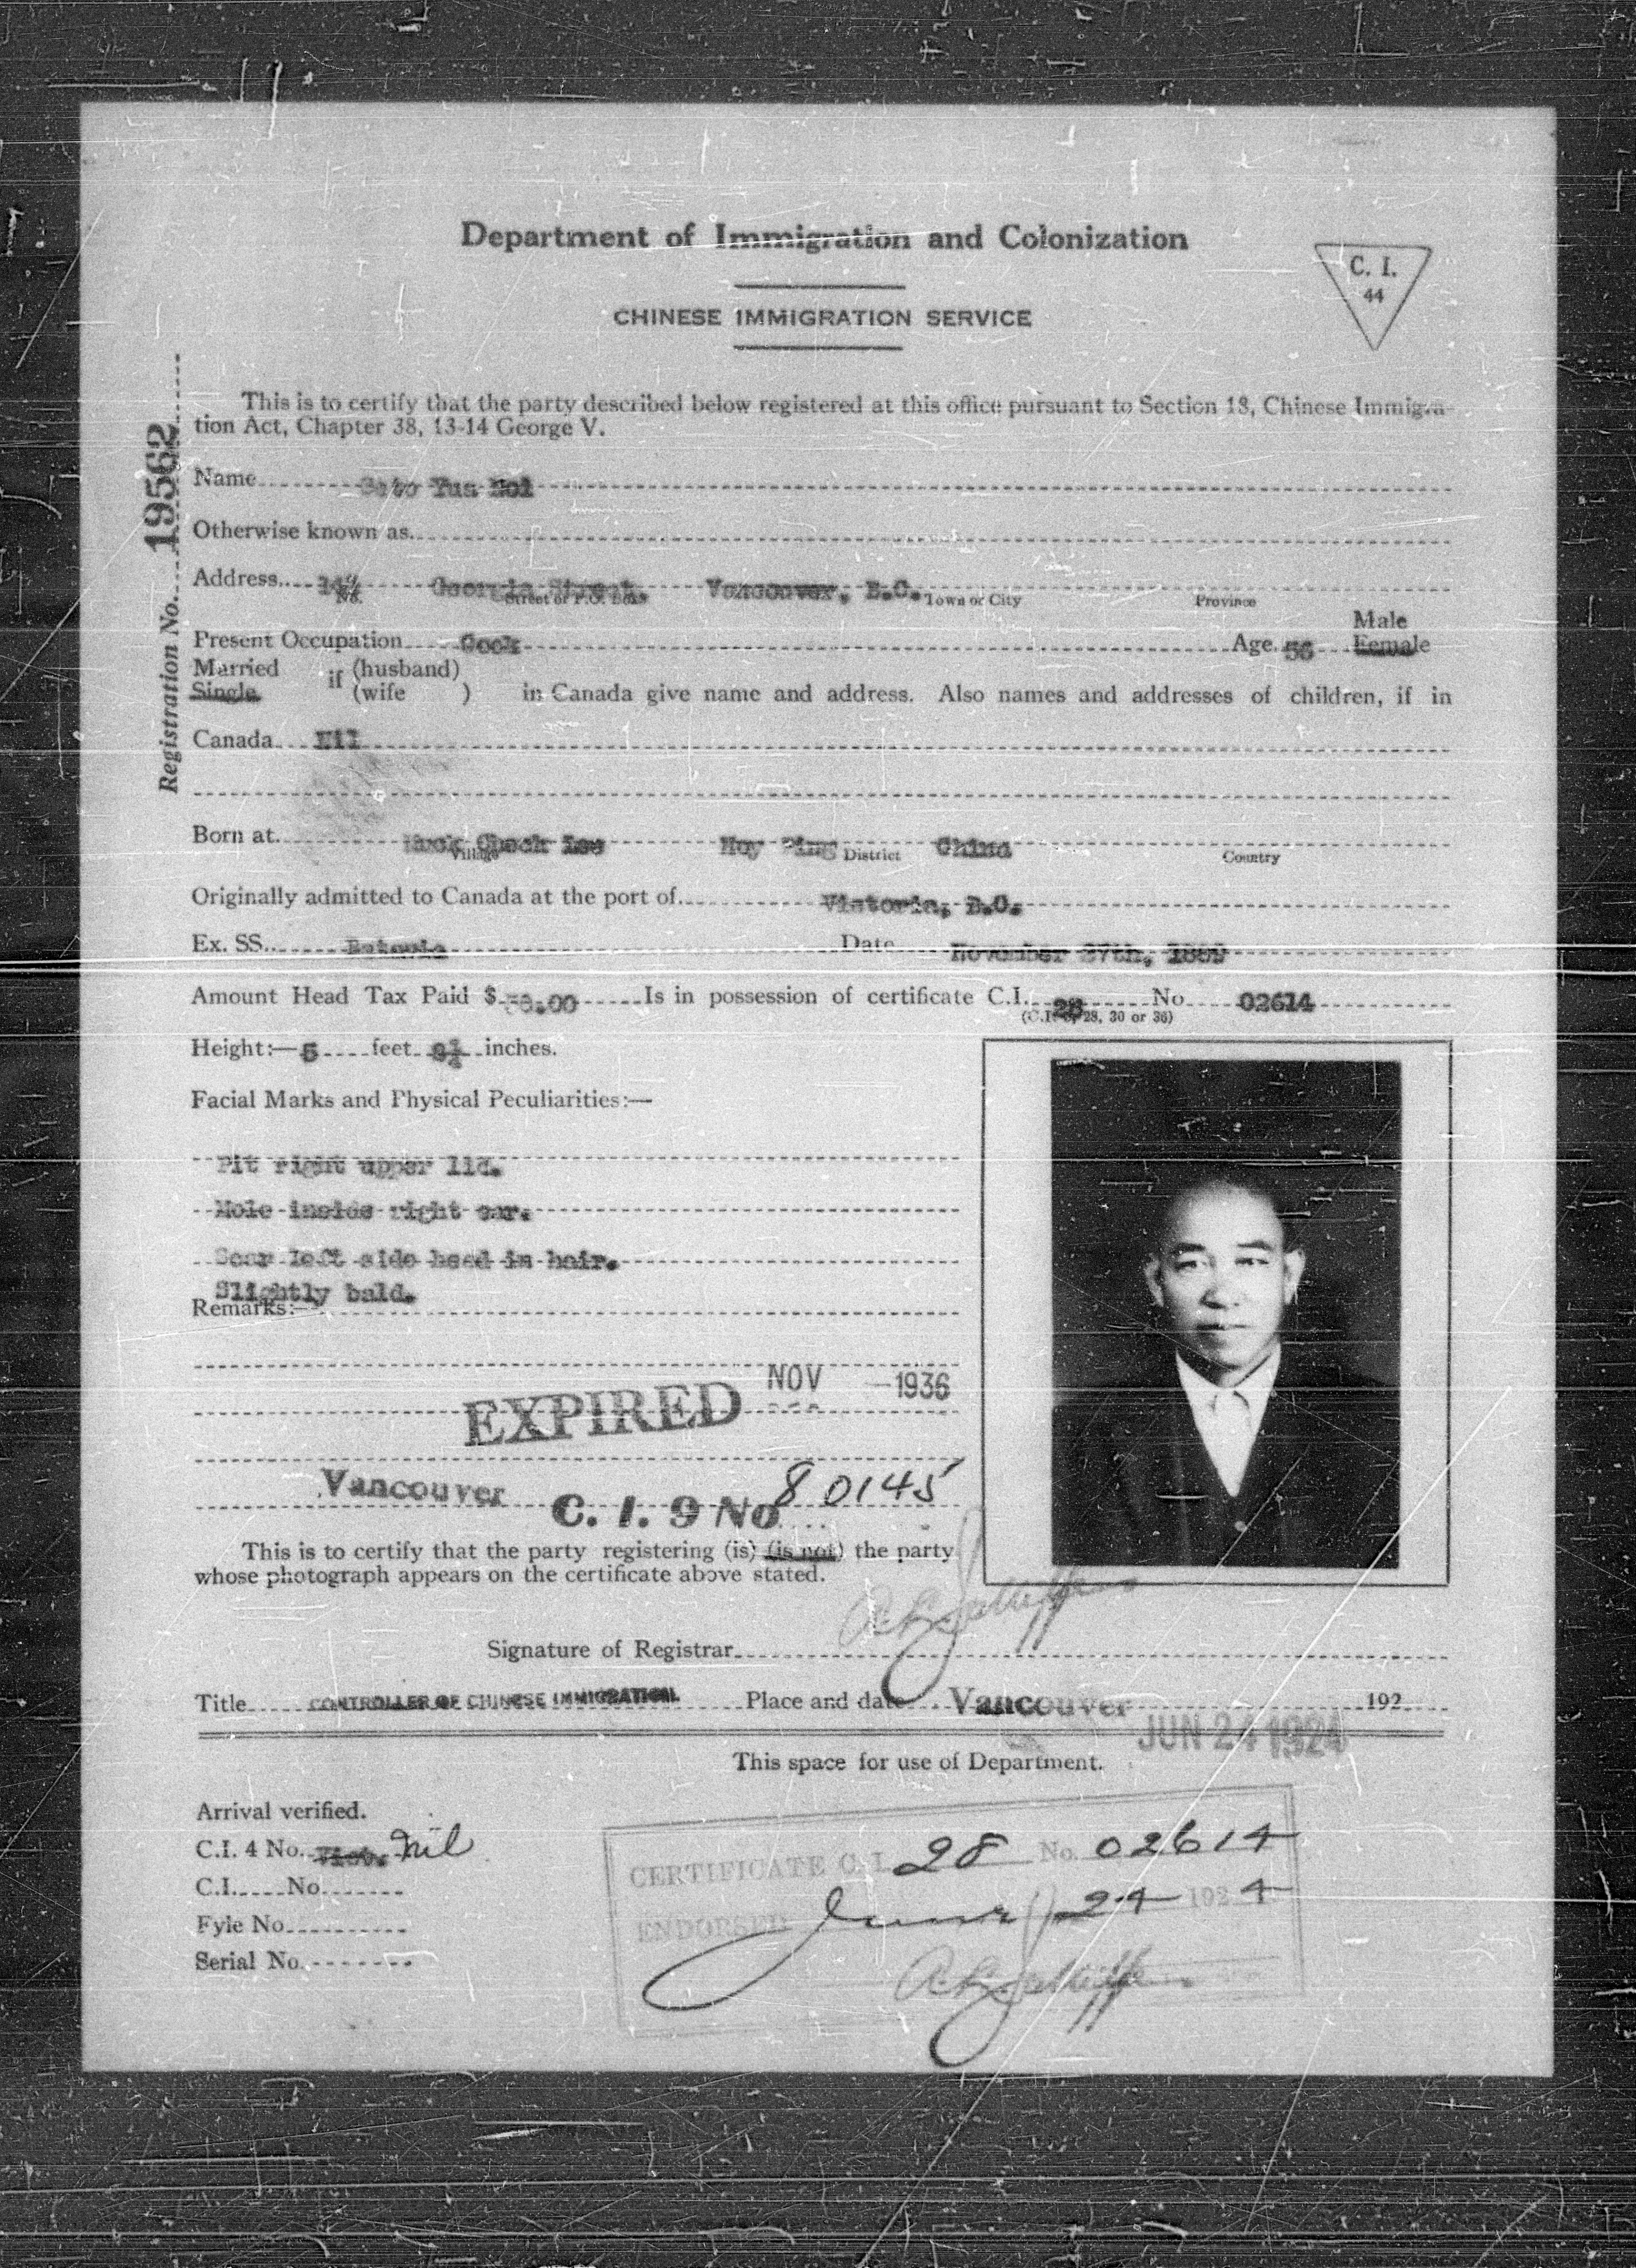 Department of Immigration and Colonization
C. I.
44
CHINESE IMMIGRATION SERVICE
This is to certify that the party described below registered at this office pursuant to Section 18, Chinese Immigra-
tion Act, Chapter 38, 13-14 George V.
Registration No. 19562
Name Yua Hoi
Otherwise known as
Address Georgia Street, Vancouver, B.C.
No. Street or P.O. Box Town or City Province
Male
Present Occupation Cook Age 56 Female
Married if (husband)
Single (wife ) in Canada give name and address. Also names and addresses of children, if in
Canada Nil
Born at Hoy Ping China
Village District Country
Originally admitted to Canada at the port of Victoria, B.C.
Ex. SS. Batavia Date November 27th,
Amount Head Tax Paid $ 50.00 Is in possession of certificate C.I. 28 No 02614
28, 30 or 36)
Height:— 5 feet inches.
Facial Marks and Physical Peculiarities:—
Pit right upper lid.
Mole inside right ear.
Scar left side head in hair.
Slightly bald.
Remarks:—
EXPIRED NOV —1936
Vancouver C. I. 9 No 80145
This is to certify that the party registering (is) (is not) the party
whose photograph appears on the certificate above stated.
Signature of Registrar
Title CONTROLLER OF CHINESE IMMIGRATION Place and date Vancouver 192
JUN 24 1924
This space for use of Department.
Arrival verified.
C.I. 4 No. Vict. Nil
C.I. No
Fyle No
Serial No.
CERTIFICATE C. I. 28 No. 02614
ENDORSED June 24 1924